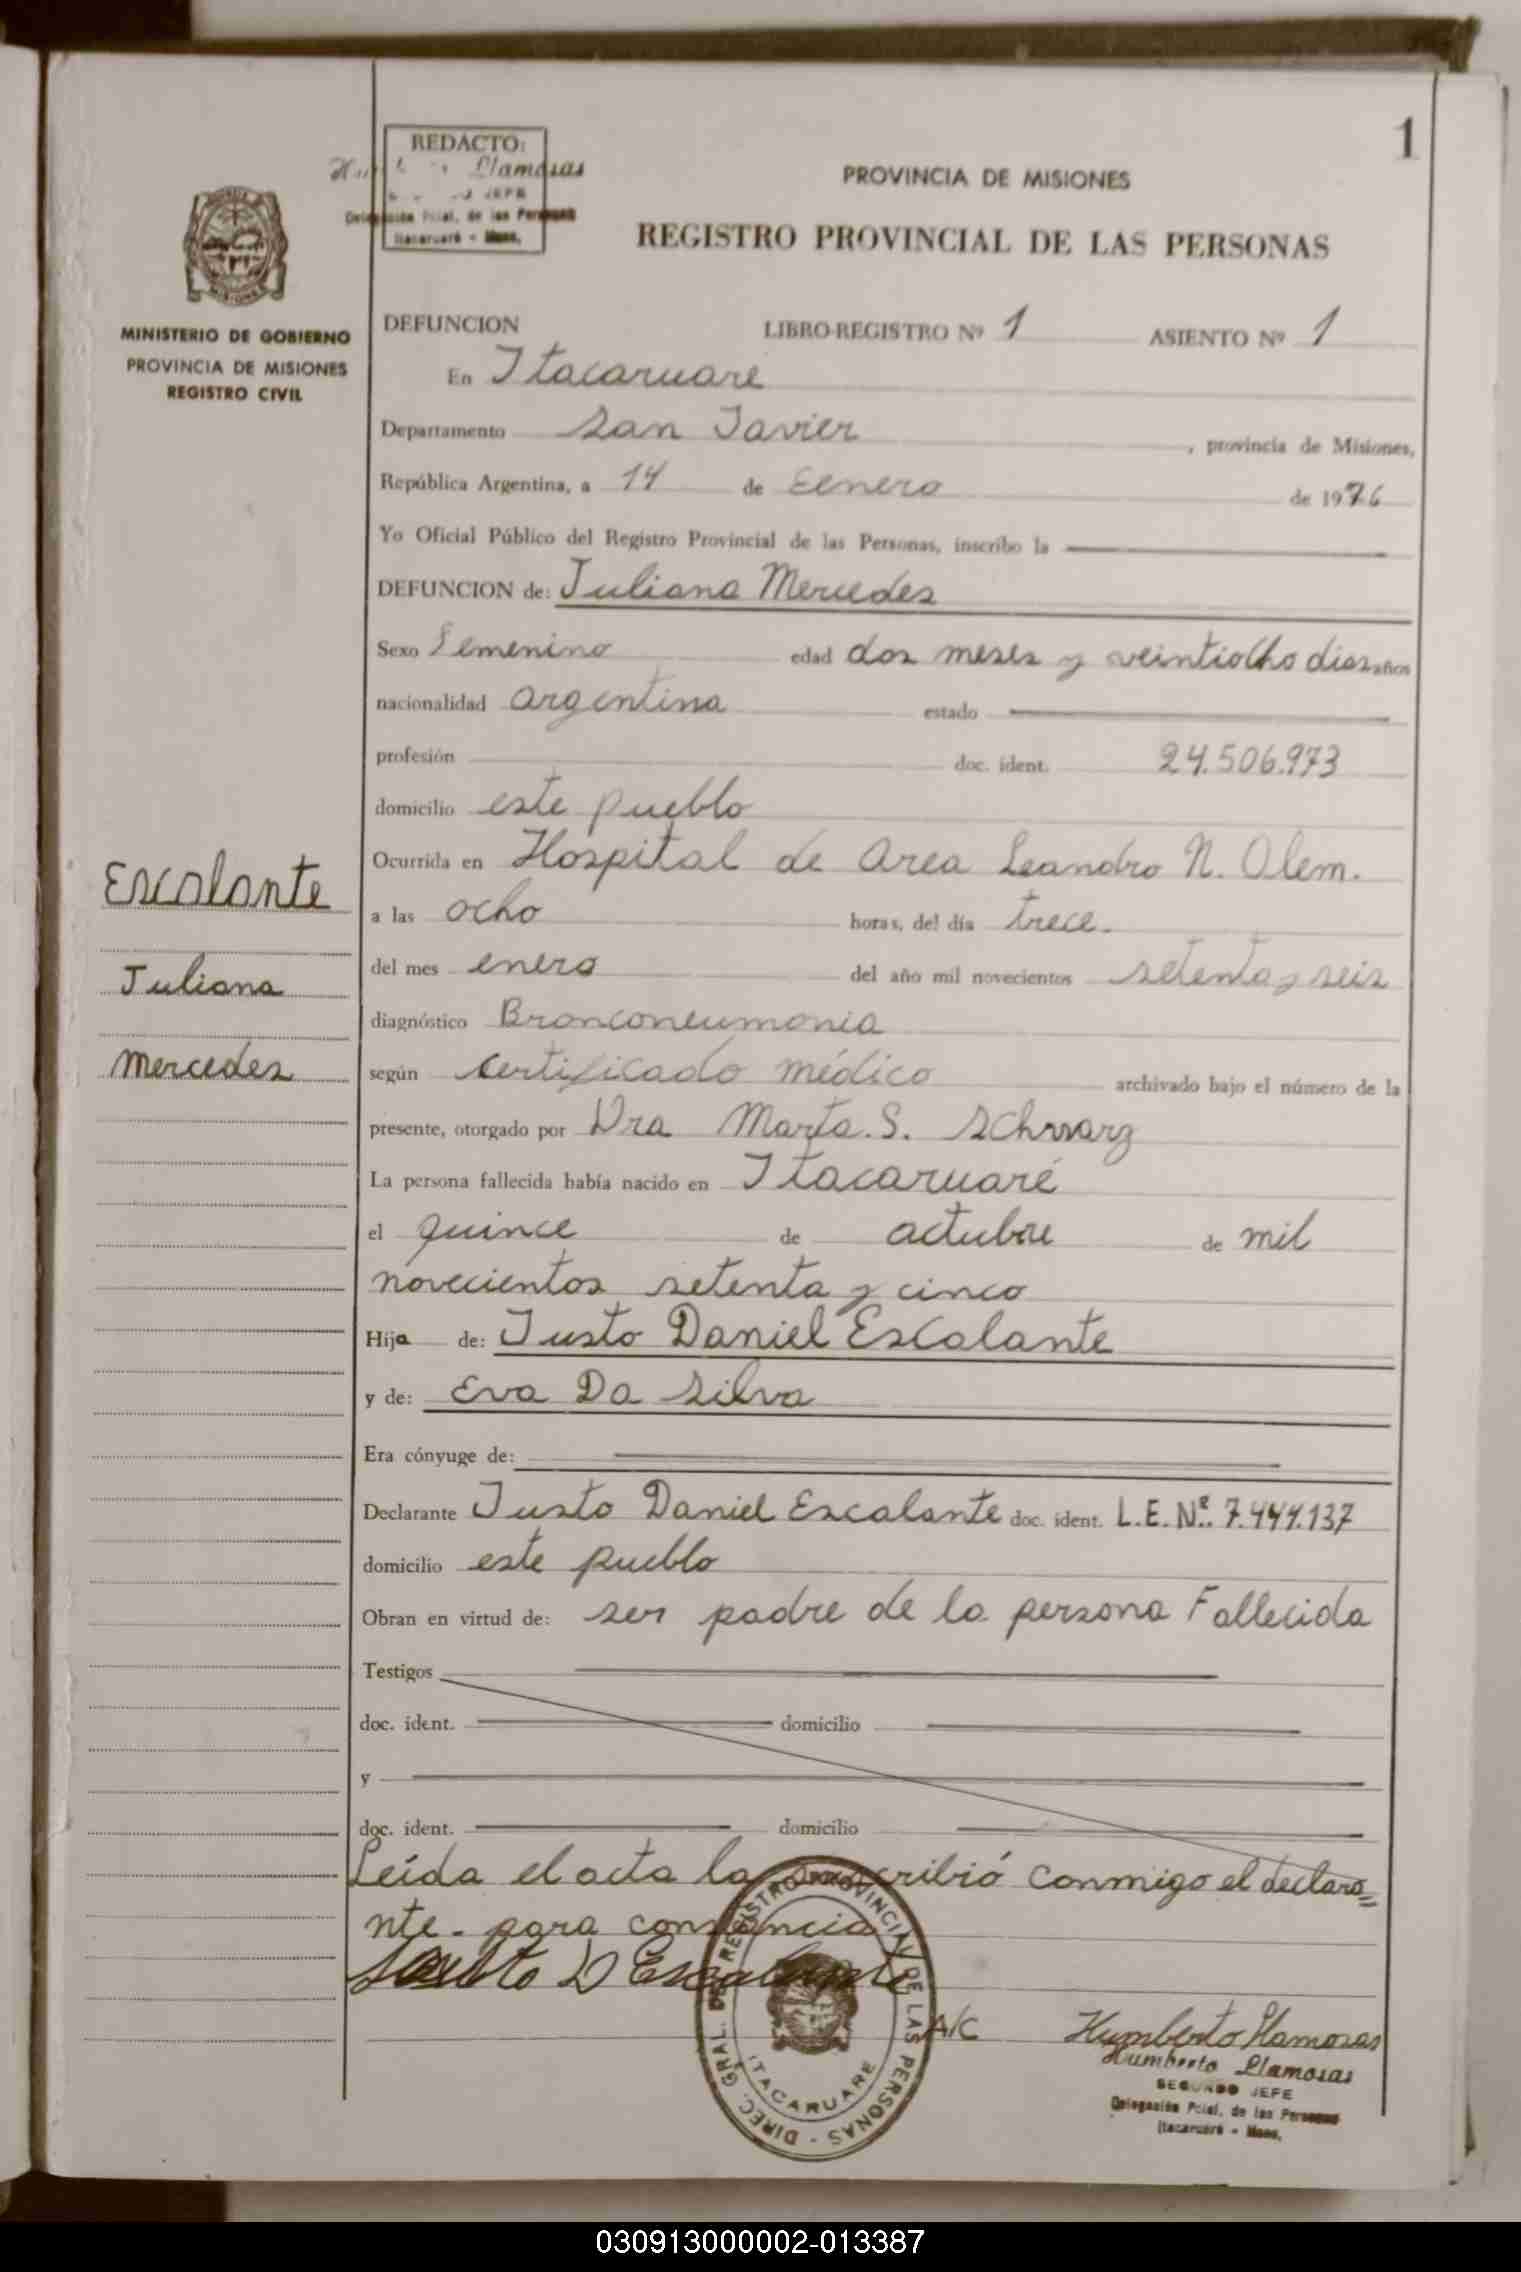 1
REDACTO:
Llamosas
JEFE
Delegación Pcial. de las Personas
Itacaruaré - Mnes.
PROVINCIA DE MISIONES
REGISTRO PROVINCIAL DE LAS PERSONAS
MINISTERIO DE GOBIERNO
PROVINCIA DE MISIONES
REGISTRO CIVIL
DEFUNCION LIBRO-REGISTRO Nº 1 ASIENTO Nº 1
En Itacaruare
Departamento San Javier, provincia de Misiones,
República Argentina, a 14 de Eenero de 1976
Yo Oficial Público del Registro Provincial de las Personas, inscribo la
DEFUNCION de: Juliana Mercedes
Sexo Femenino edad dos meses y veintiocho dias años
nacionalidad argentina estado
profesión doc. ident. 24.506.973
domicilio este pueblo
Ocurrida en Hospital de Area Leandro N. Alem.
a las ocho horas, del día trece.
del mes enero del año mil novecientos setenta y seis
diagnóstico Bronconeumonia
según certificado médico archivado bajo el número de la
presente, otorgado por Dra Marta. S. Schwarz
La persona fallecida había nacido en Itacaruaré
el quince de actubre de mil
novecientos setenta y cinco
Hija de: Justo Daniel Escalante
y de: Eva Da Silva
Era cónyuge de:
Declarante Justo Daniel Escalante doc. ident. L.E. Nº. 7.444.137
domicilio este pueblo
Obran en virtud de: ser padre de la persona Fallecida
Testigos
doc. ident. domicilio
y
doc. ident. domicilio
Leída el acta la suscribió conmigo el declara=
nte. para constancia
Justo D Escalante
A/C Humberto Llamosas
Humberto Llamosas
SEGUNDO JEFE
Delegación Pcial. de las Personas
Itacaruaré - Mnes.
DIREC. GRAL. DEL REGISTRO PROVINCIAL DE LAS PERSONAS -
ITACARUARE
Escalante
Juliana
Mercedes
MISIONES
030913000002-013387